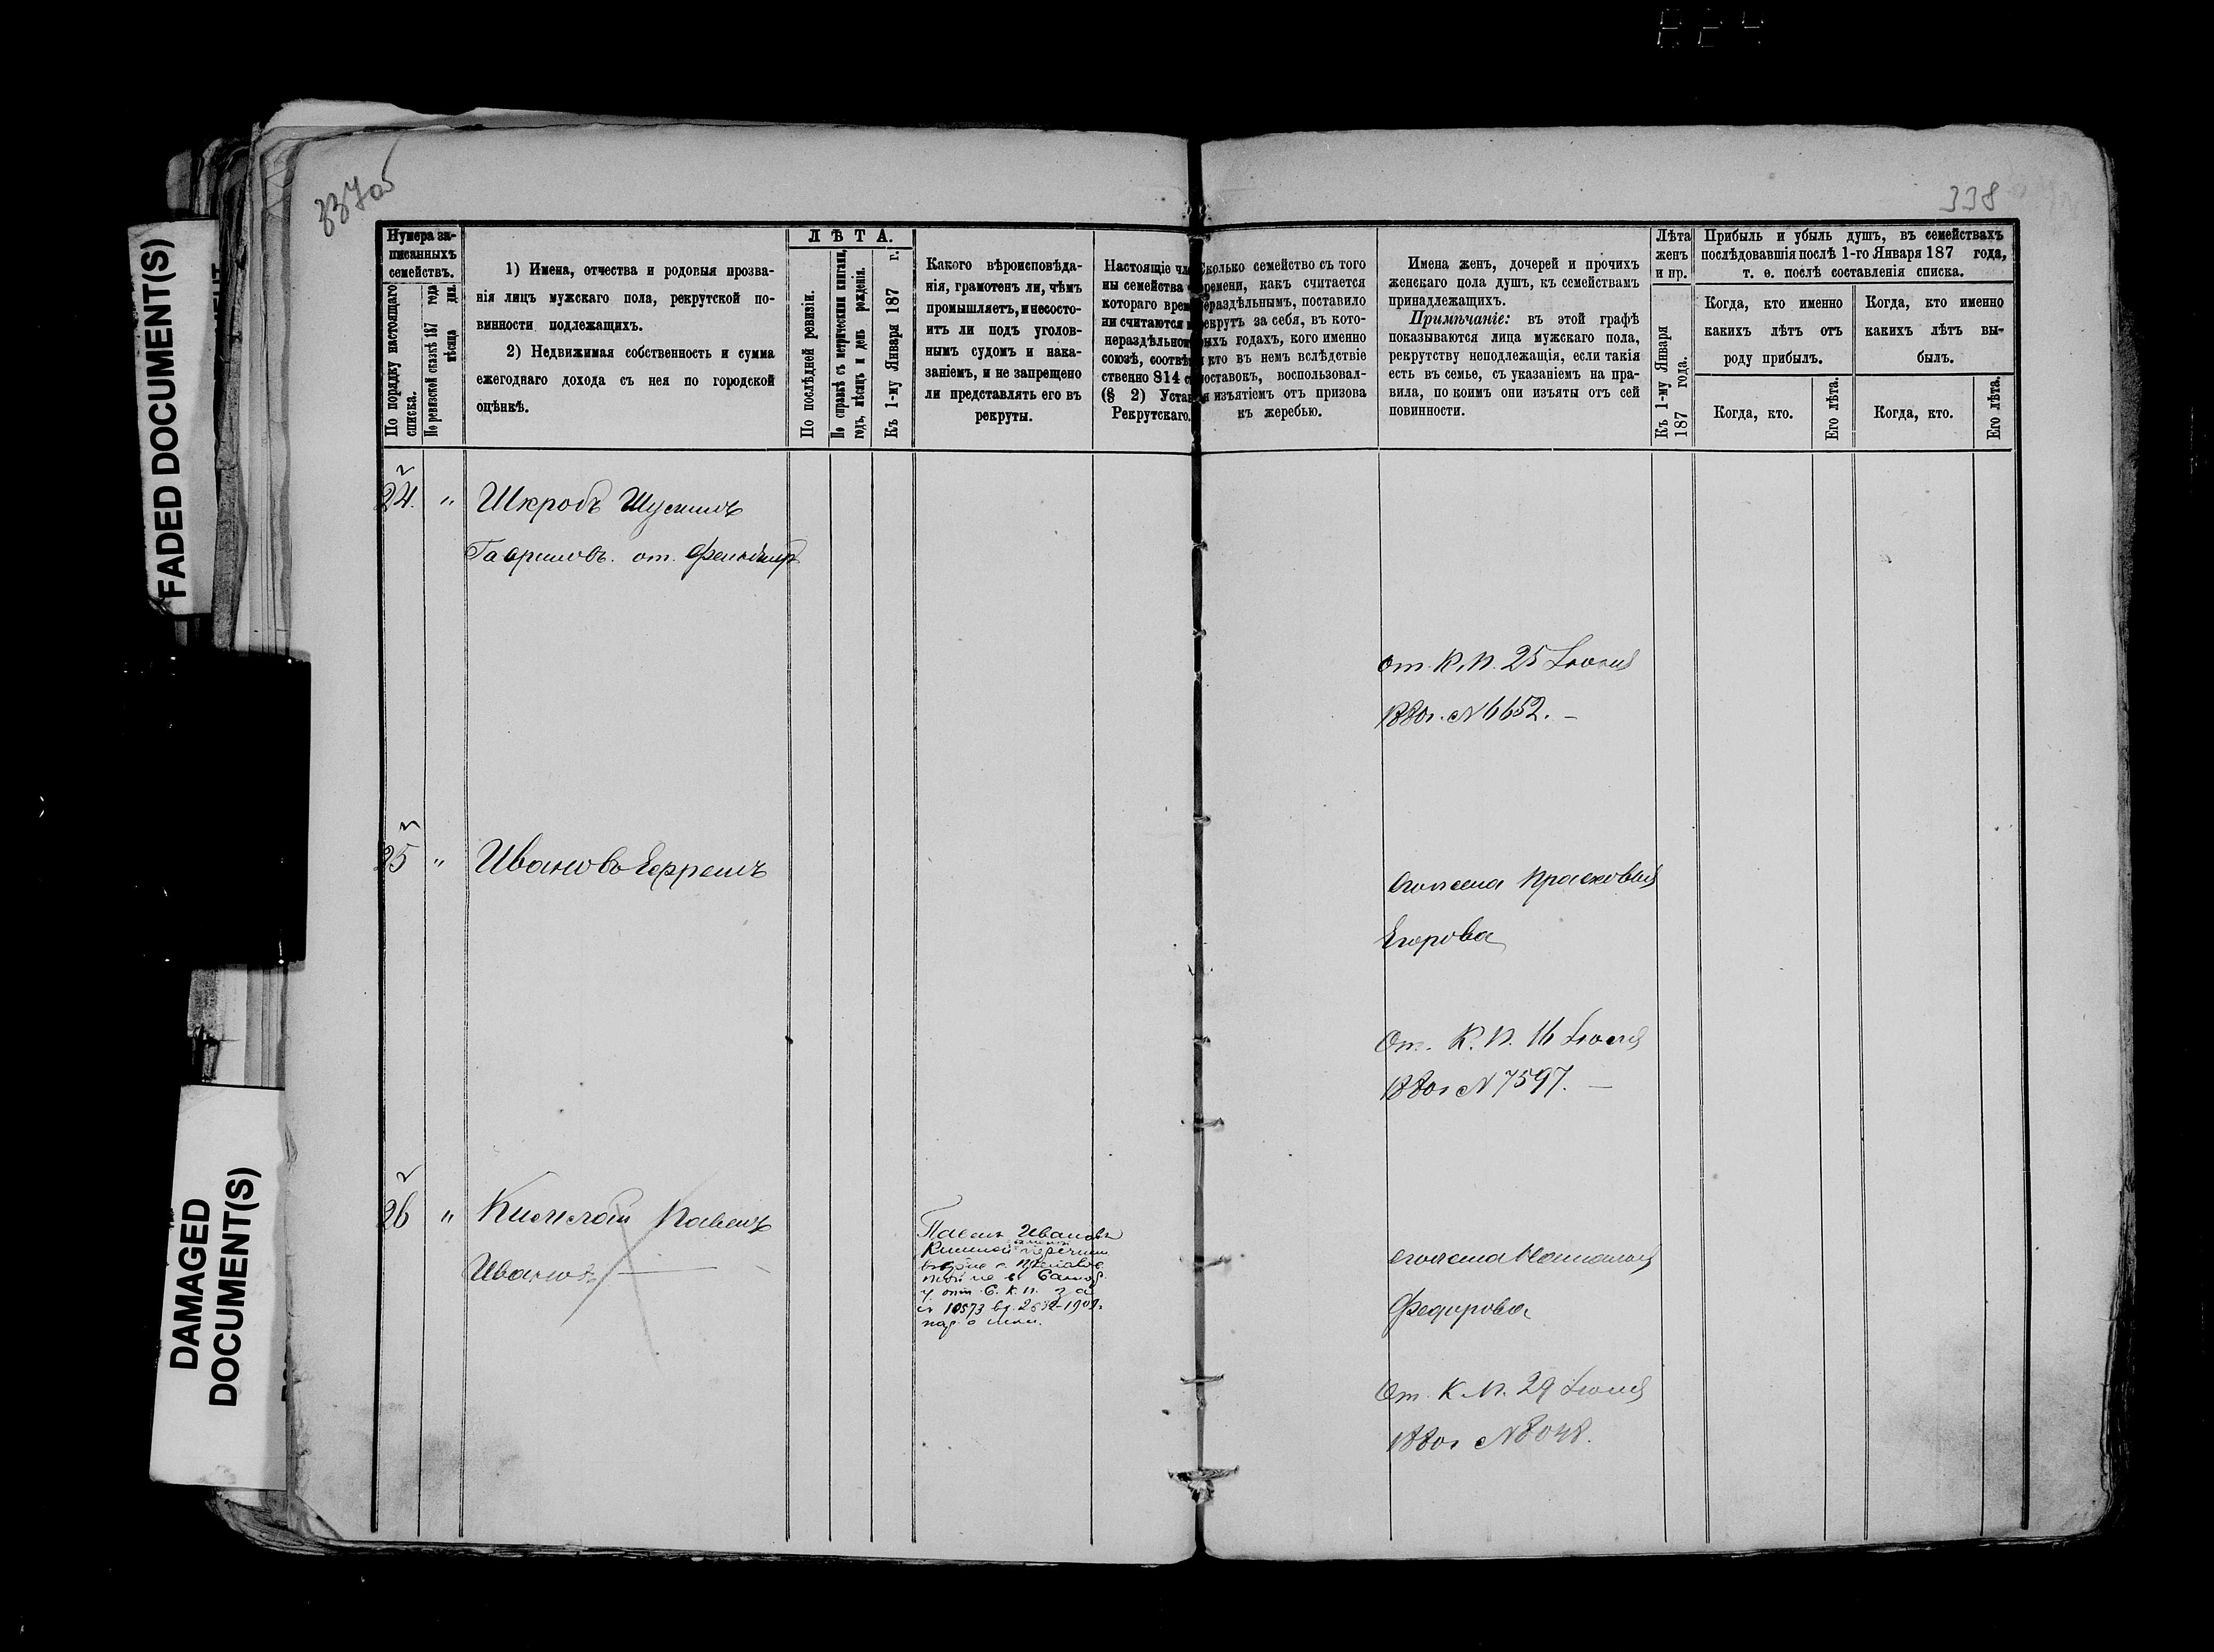 FADED DOCUMENT(S)
DAMAGED
DOCUMENT(S)
337 об
338
Нумера за-
писанныхъ
семействъ.
По порядку настоящаго
списка.
По ревизской сказкѣ 187 года
мѣсяца дня.
1) Имена, отчества и родовыя прозва-
нія лицъ мужскаго пола, рекрутской по-
винности подлежащихъ.
2) Недвижимая собственность и сумма
ежегоднаго дохода съ нея по городской
оцѣнкѣ.
ЛѢТА.
По послѣдней ревизіи.
По справкѣ съ метрическими книгами,
годъ, мѣсяцъ и день рожденія.
Къ 1-му Января 187 г.
Какого вѣроисповѣда-
нія, грамотенъ ли, чѣмъ
промышляетъ, и несосто-
итъ ли подъ уголов-
нымъ судомъ и нака-
заніемъ, и не запрещено
ли представлять его въ
рекруты.
Настоящіе чле
ны семейства
котораго врем
ни считаются
нераздѣльном
союзѣ, соотвѣт
ственно 814 с
(§ 2) Устав
Рекрутскаго.
Сколько семейство съ того
времени, какъ считается
нераздѣльнымъ, поставило
рекрутъ за себя, въ кото-
рыхъ годахъ, кого именно
и кто въ немъ вслѣдствіе
поставокъ, воспользовал-
ся изъятіемъ отъ призова
къ жеребью.
Имена женъ, дочерей и прочихъ
женскаго пола душъ, къ семействамъ
принадлежащихъ.
Примѣчаніе: въ этой графѣ
показываются лица мужскаго пола,
рекрутству неподлежащія, если такія
есть въ семье, съ указаніемъ на пра-
вила, по коимъ они изъяты отъ сей
повинности.
Лѣта
женъ
и пр.
Къ 1-му Января
187 года.
Прибыль и убыль душъ, въ семействахъ
послѣдовавшія послѣ 1-го Января 187 года,
т. е. послѣ составленія списка.
Когда, кто именно
какихъ лѣтъ отъ
роду прибылъ.
Когда, кто именно
какихъ лѣтъ вы-
былъ.
Когда, кто.
Его лѣта.
Когда, кто.
Его лѣта.
24. " Шкробъ
Гавриловъ. от.
От. К. П. 25 Iюня
1880г. № 6652. –
25 " Ивановъ Ефремъ
его жена Прасковья
Егорова
От. К. П. 16 Iюля
1880г № 7597. –
26 " Павелъ
Ивановъ
Павелъ Ивановъ
№ 10573
его жена Наталья
Федорова
От. К. П. 29 Iюля
1880г № 8048.